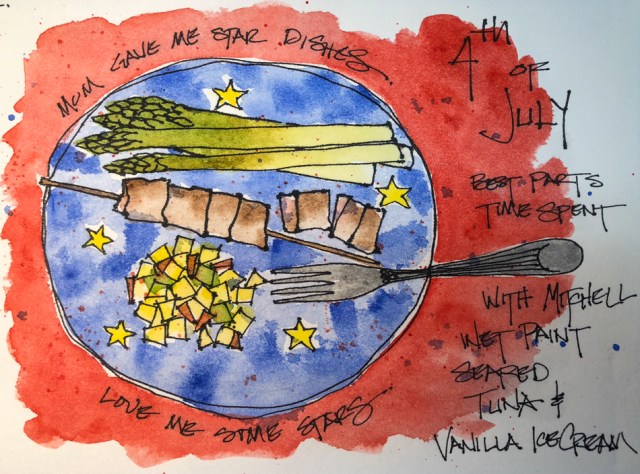 MOM GAVE ME STAR DISHES
4TH
OF
JULY
BEST PARTS
TIME SPENT
WITH MITCHELL
WET PAINT
SEARED
TUNA &
VANILLA ICECREAM
LOVE ME SOME STARS